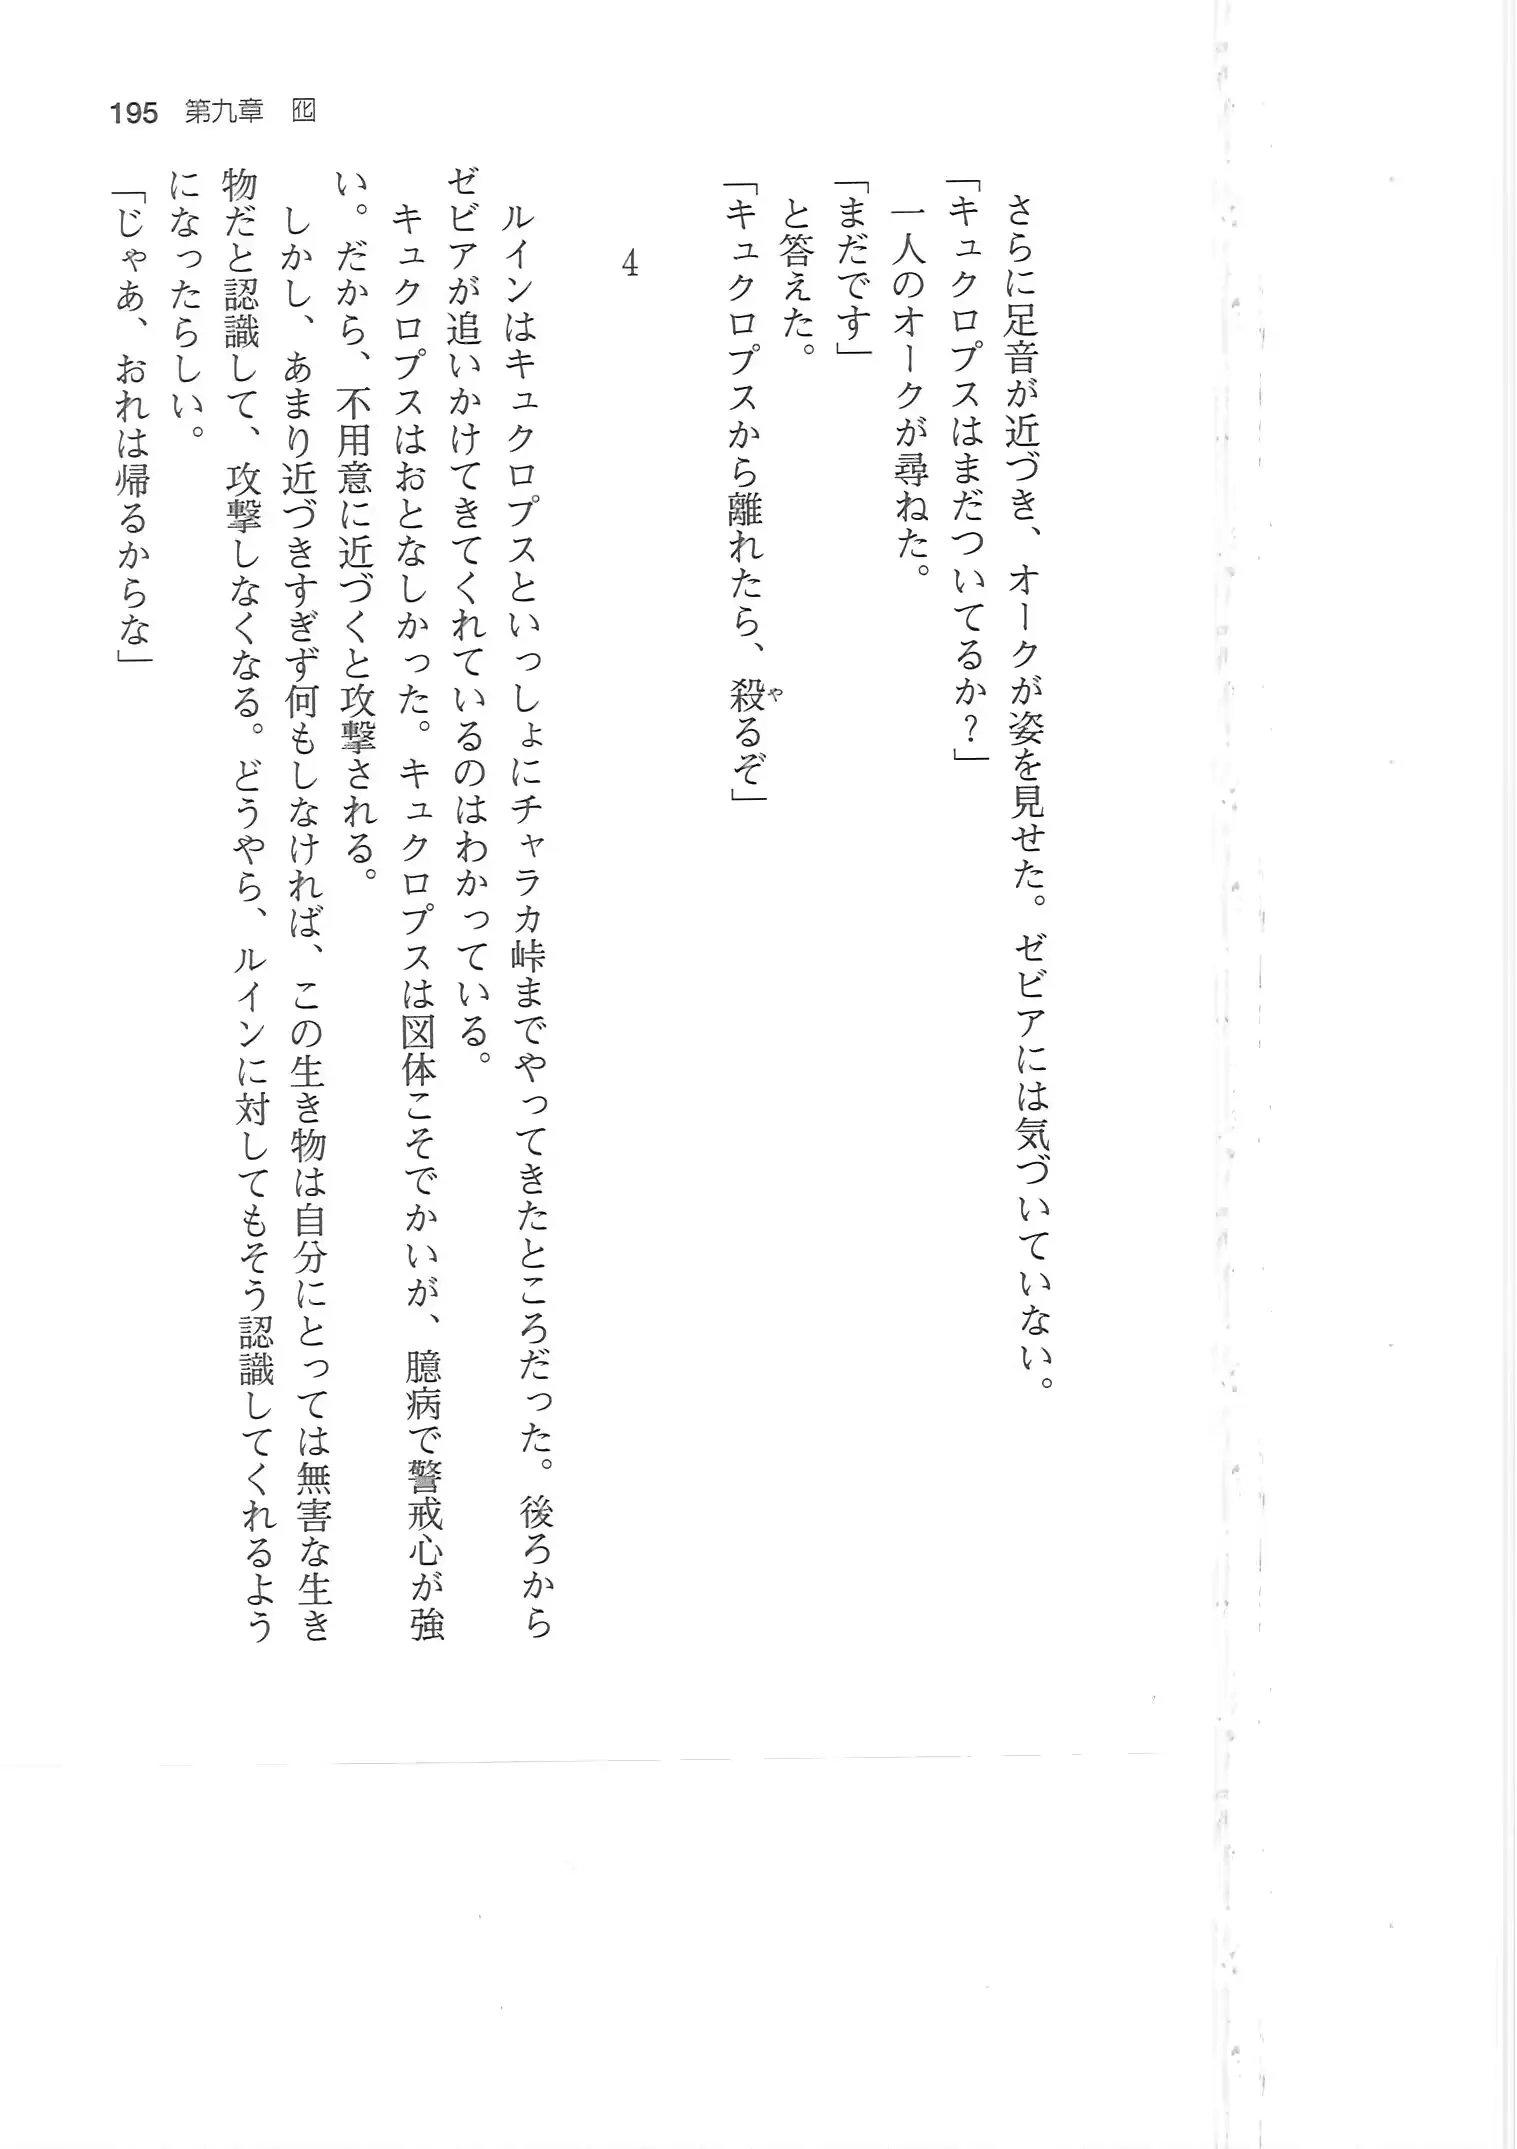 195 第九章 囮
さらに足音が近づき、オークが姿を見せた。ゼビアには気づいていない。
「キュクロプスはまだついてるか？」
一人のオークが尋ねた。
「まだです」
と答えた。
「キュクロプスから離れたら、殺るぞ」
や
4
ルインはキュクロプスといっしょにチャラカ峠までやってきたところだった。後ろから
ゼビアが追いかけてきてくれているのはわかっている。
キュクロプスはおとなしかった。キュクロプスは図体こそでかいが、臆病で警戒心が強
い。だから、不用意に近づくと攻撃される。
しかし、あまり近づきすぎず何もしなければ、この生き物は自分にとっては無害な生き
物だと認識して、攻撃しなくなる。どうやら、ルインに対してもそう認識してくれるよう
になったらしい。
「じゃあ、おれは帰るからな」